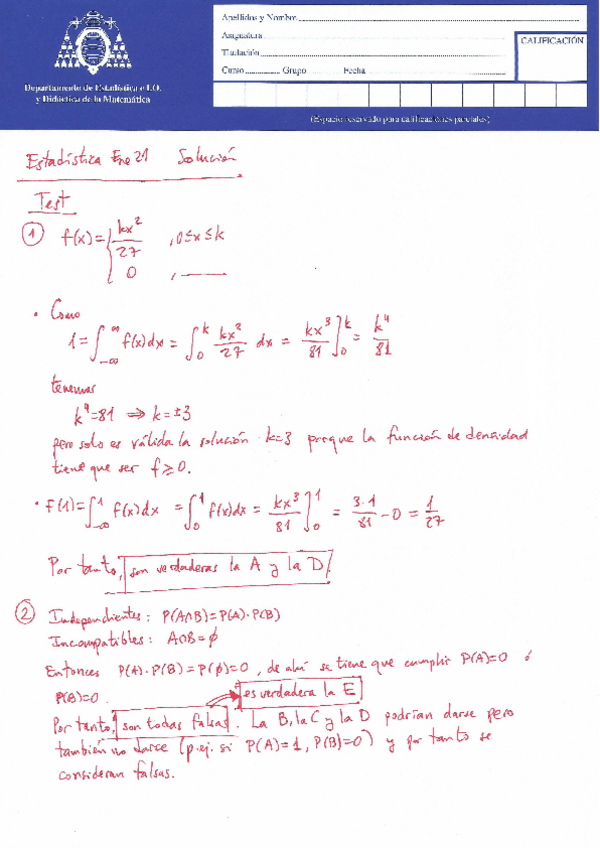 Apellidos y Nombre
Asignatura
Titulación
Curso Grupo Fecha
CALIFICACIÓN
Departamento de Estadística e I.O.
y Didáctica de la Matemática
(Espacio reservado para calificaciones parciales)
Estadística Ene 21 Solución
Test
① f(x) = { kx²/27 , 0≤x≤k
0 , ——
• Como
1 = ∫_{-∞}^{∞} f(x)dx = ∫_0^k kx²/27 dx = kx³/81 ]_0^k = k⁴/81
tenemos
k⁴=81 ⇒ k=±3
pero solo es válida la solución k=3 porque la función de densidad
tiene que ser f≥0.
• F(1) = ∫_{-∞}^1 f(x)dx = ∫_0^1 f(x)dx = kx³/81 ]_0^1 = 3·1/81 - 0 = 1/27
Por tanto, son verdaderas la A y la D.
② Independientes: P(A∩B)=P(A)·P(B)
Incompatibles: A∩B=∅
Entonces P(A)·P(B)=P(∅)=0, de ahí se tiene que cumplir P(A)=0 ó
P(B)=0.
es verdadera la E
Por tanto, son todas falsas. La B, la C y la D podrían darse pero
también no darse (p.ej. si P(A)=1, P(B)=0) y por tanto se
consideran falsas.